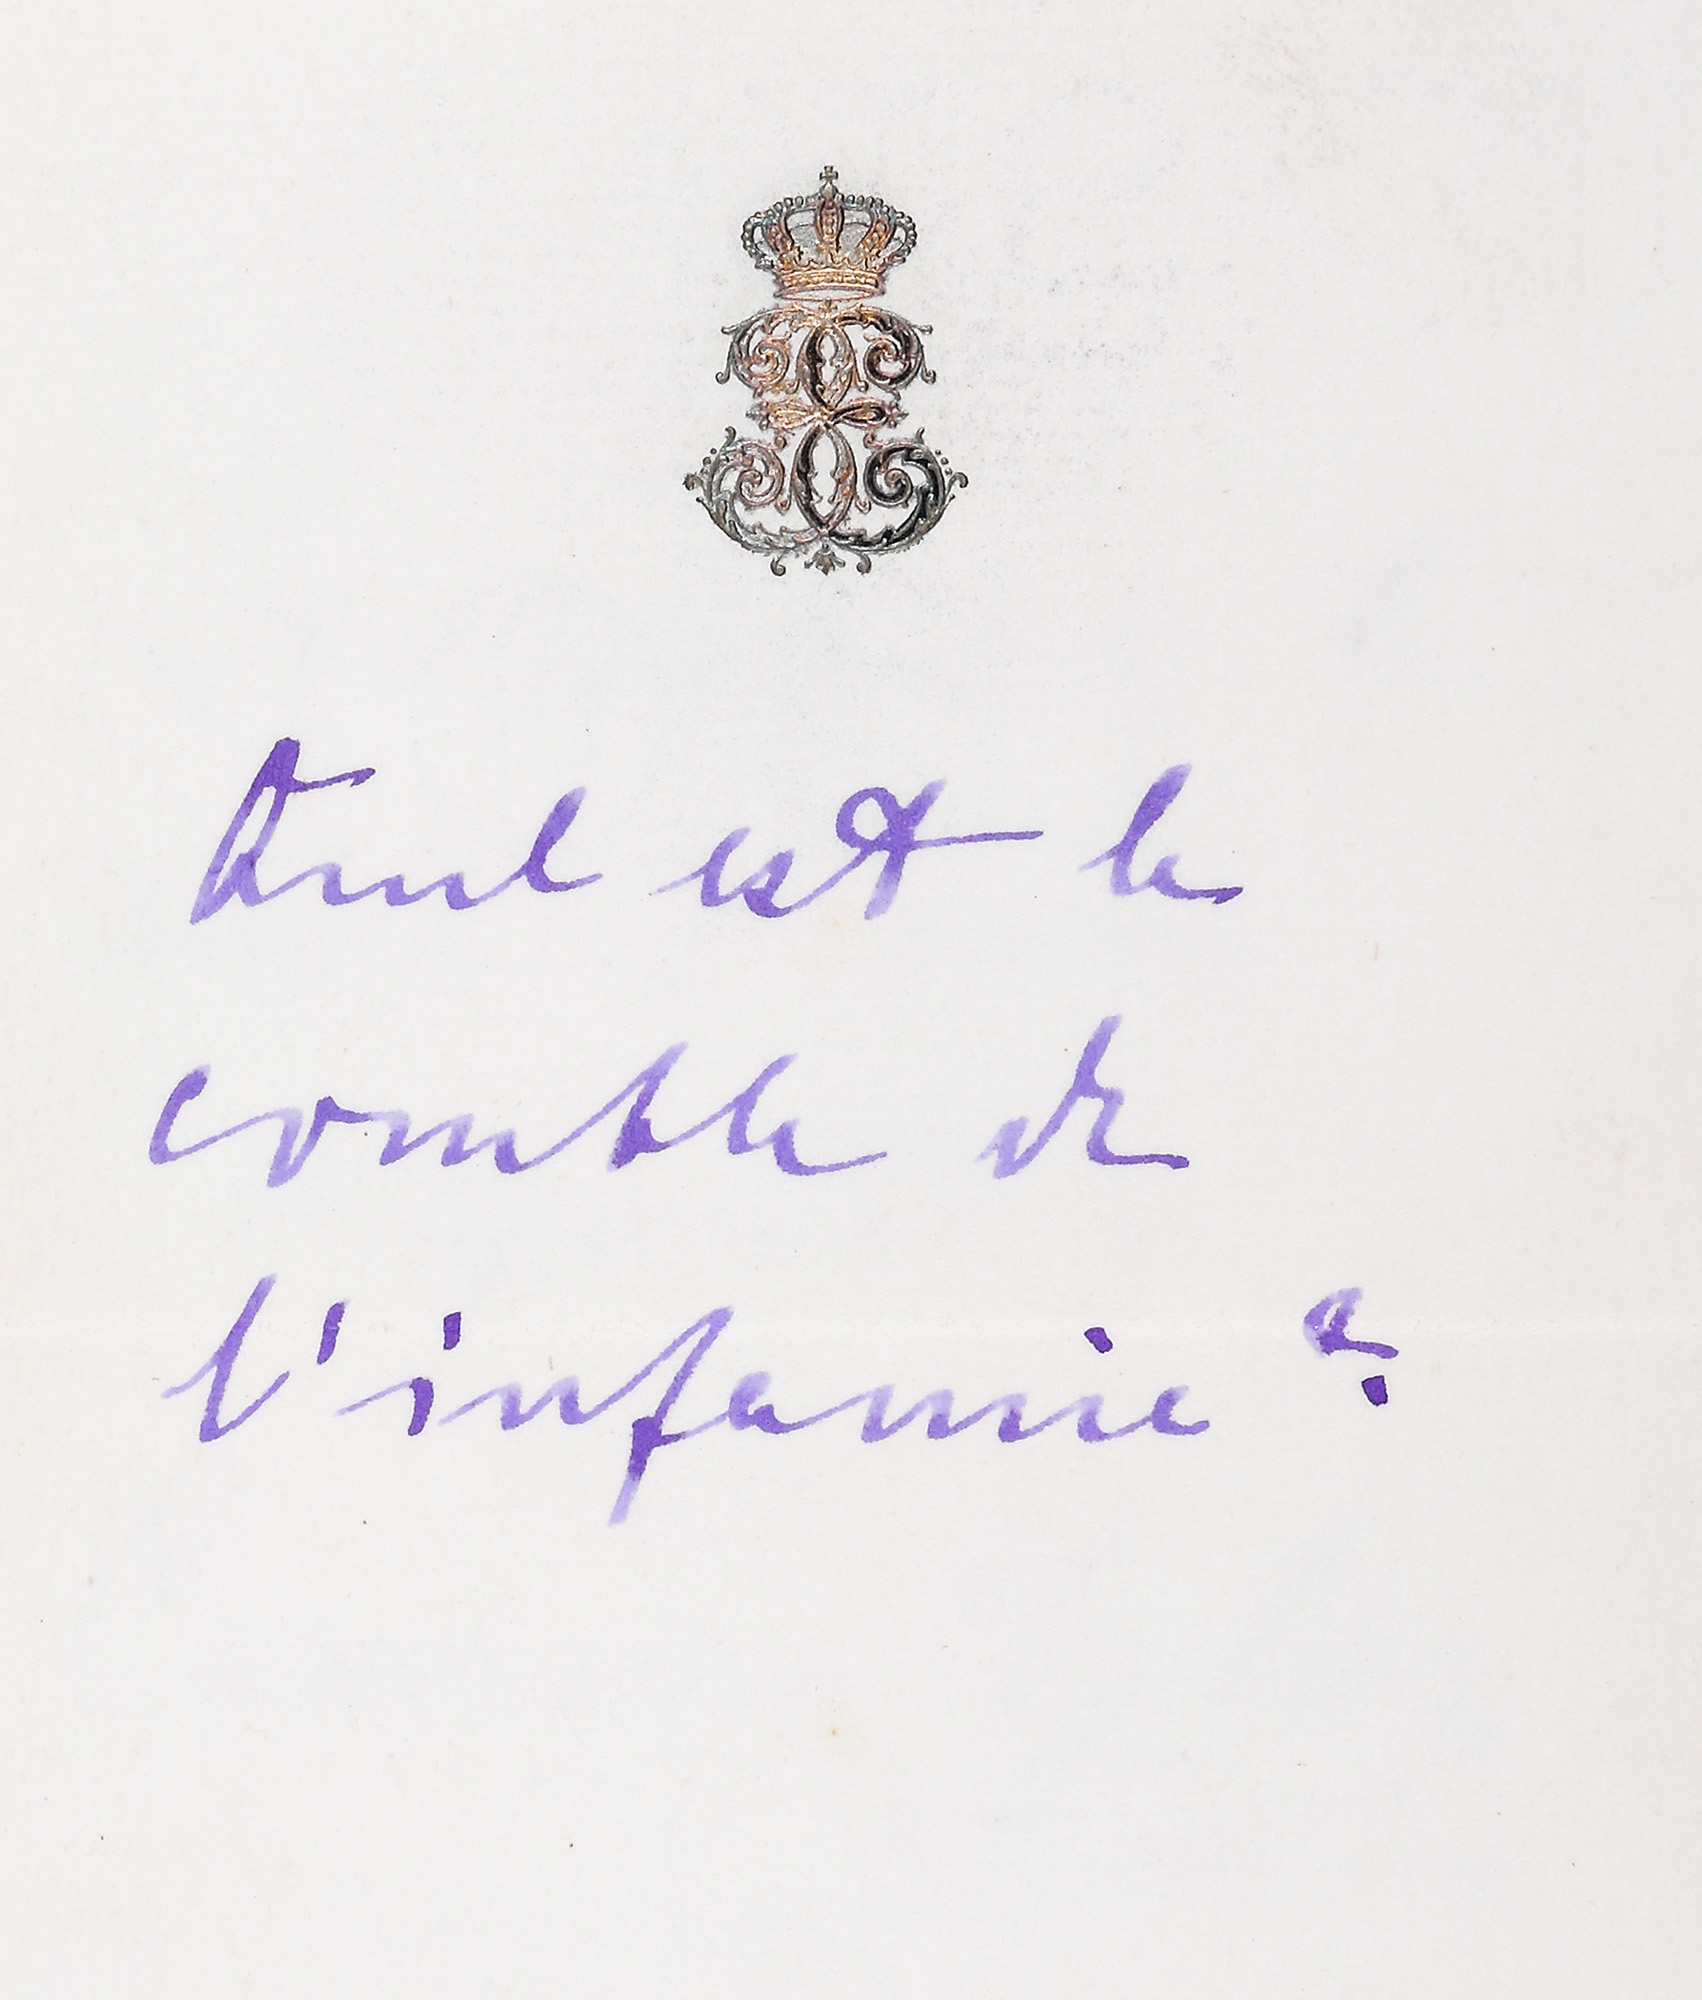 Quel est le
comble de
l'infamie?